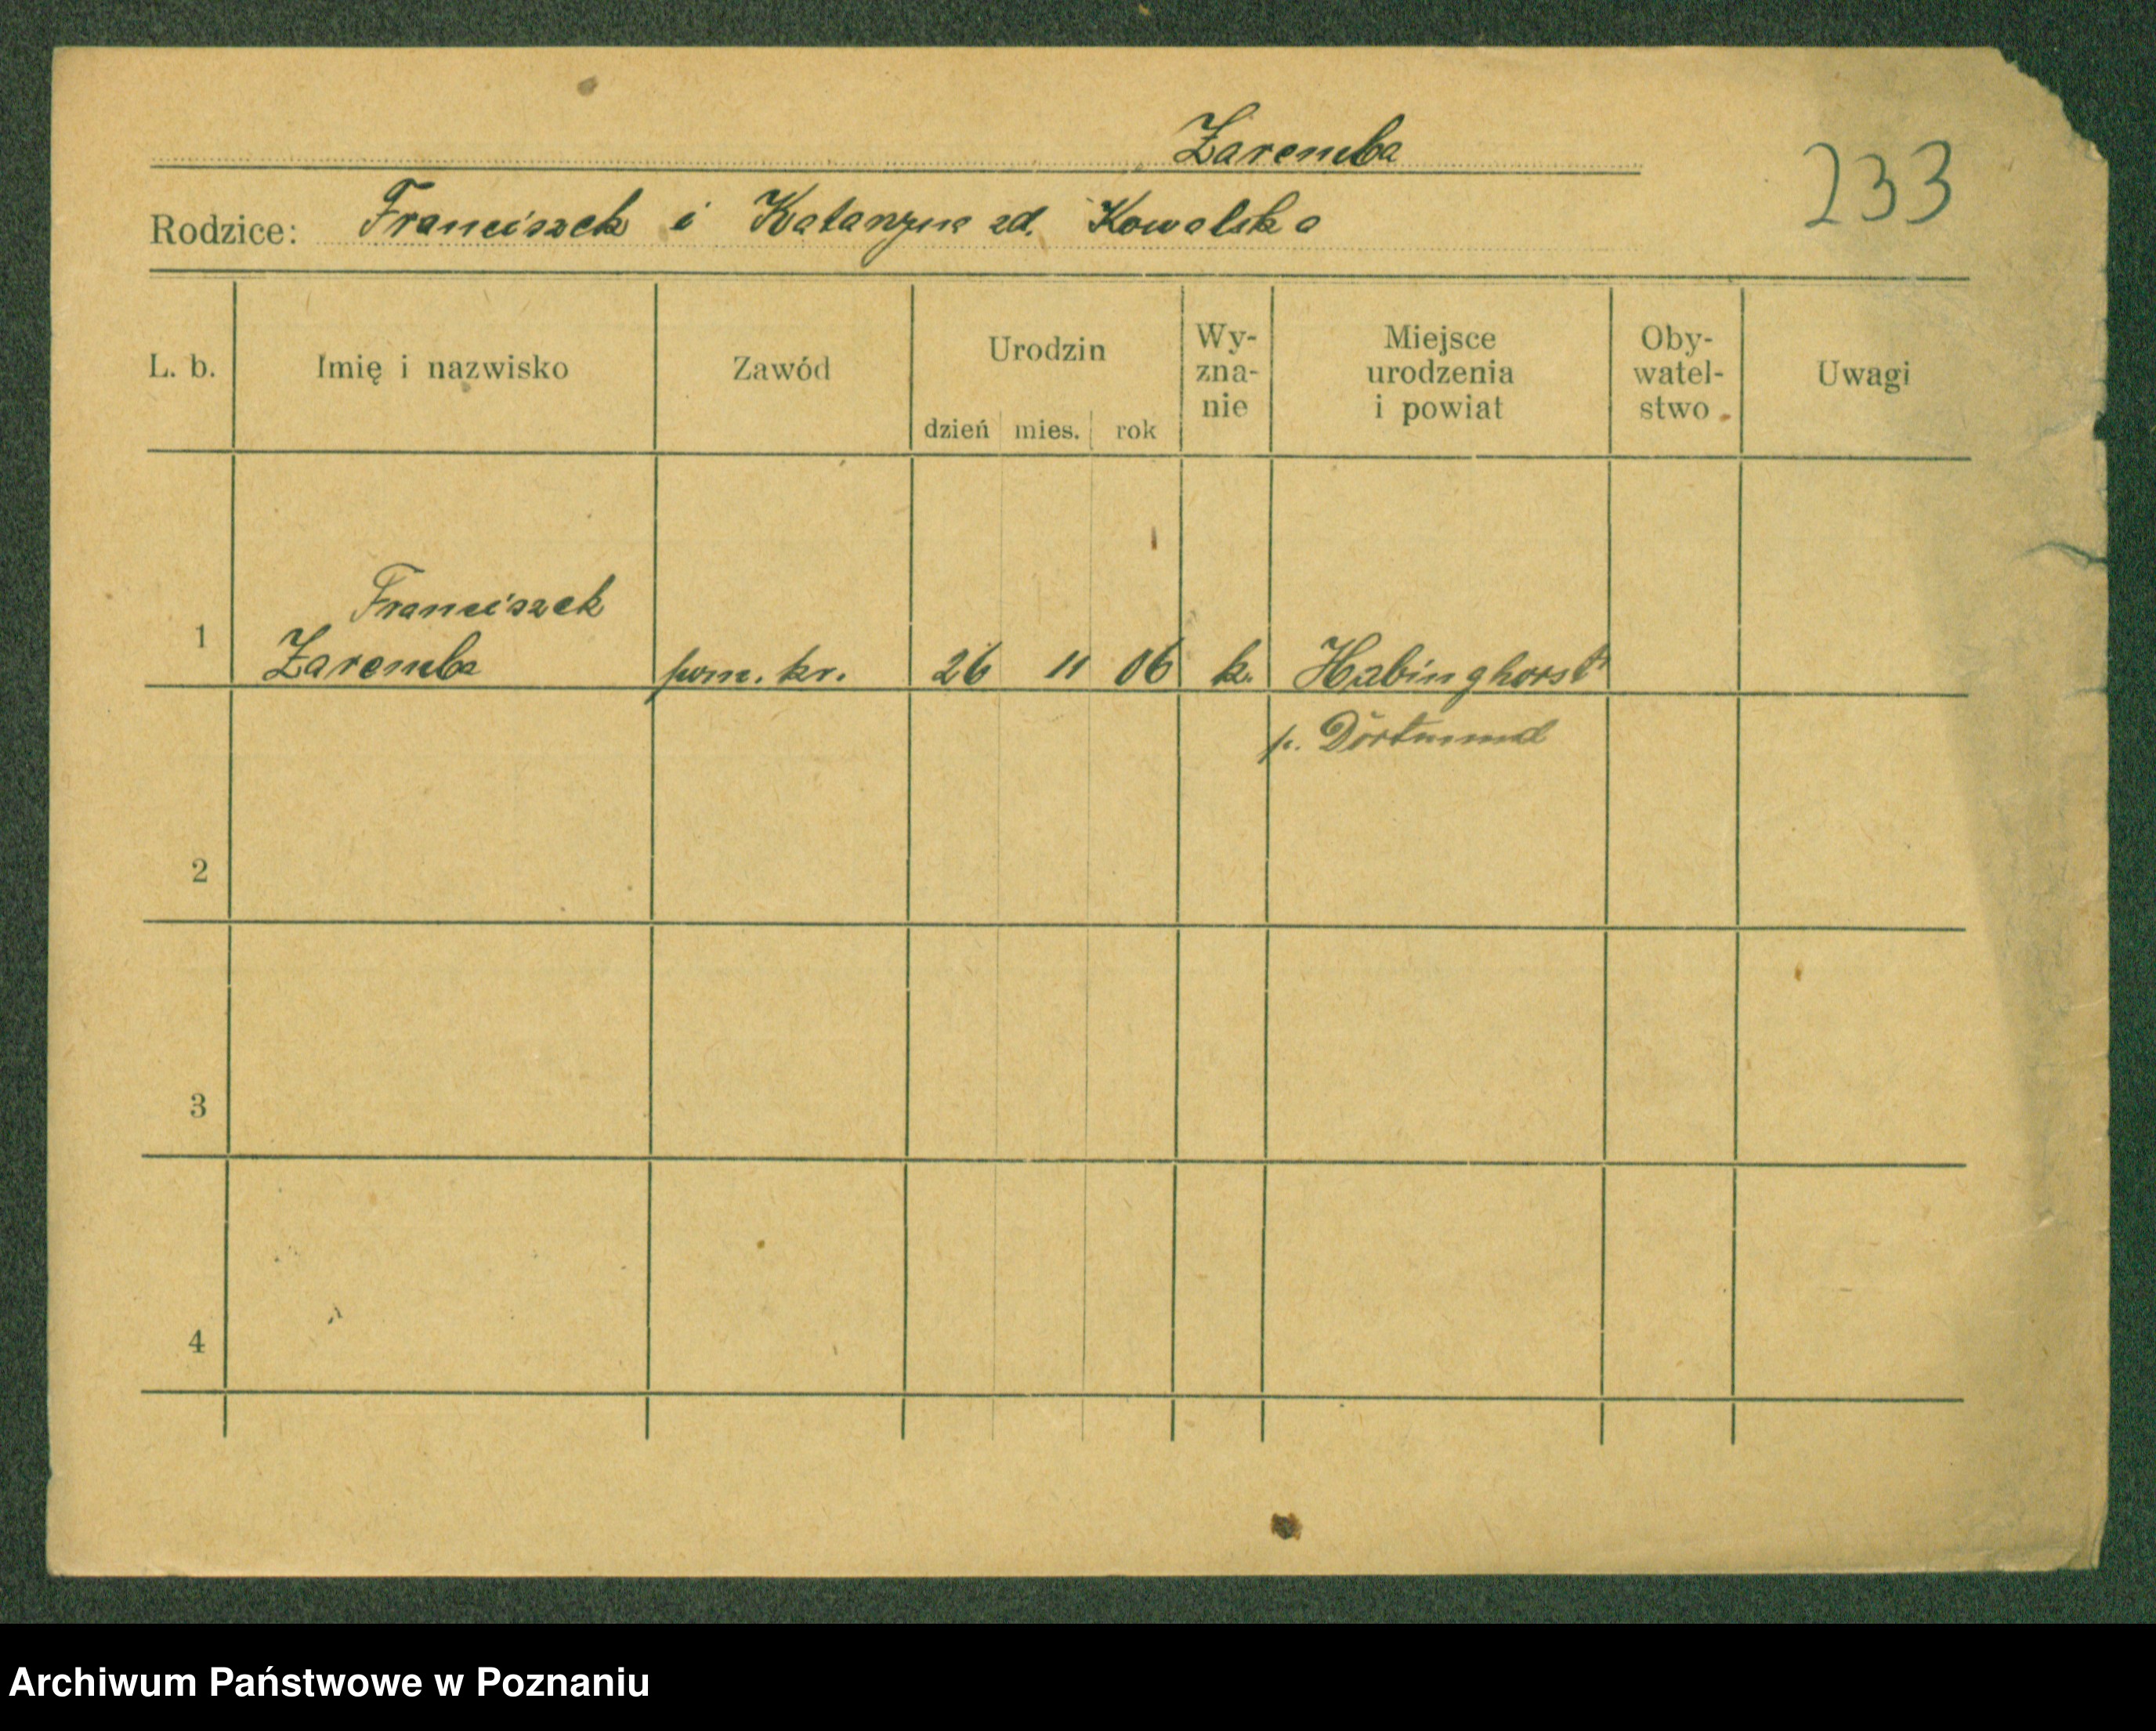 Zaremba
233
Rodzice: Franciszek i Katarzyna zd. Kowalska
L. b. Imię i nazwisko Zawód Urodzin dzień mies. rok Wy-zna-nie Miejsce urodzenia i powiat Oby-watel-stwo Uwagi
Franciszek
1 Zaremba pom. kr. 26 11 06 k. Habinghorst
p. Dortmund
2
3
4
Archiwum Państwowe w Poznaniu